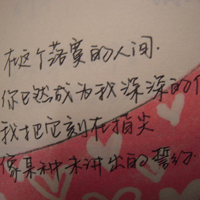 在这个落寞的人间.
你已然成为我深深的
我把它刻在指尖
像某种未讲出的誓约.